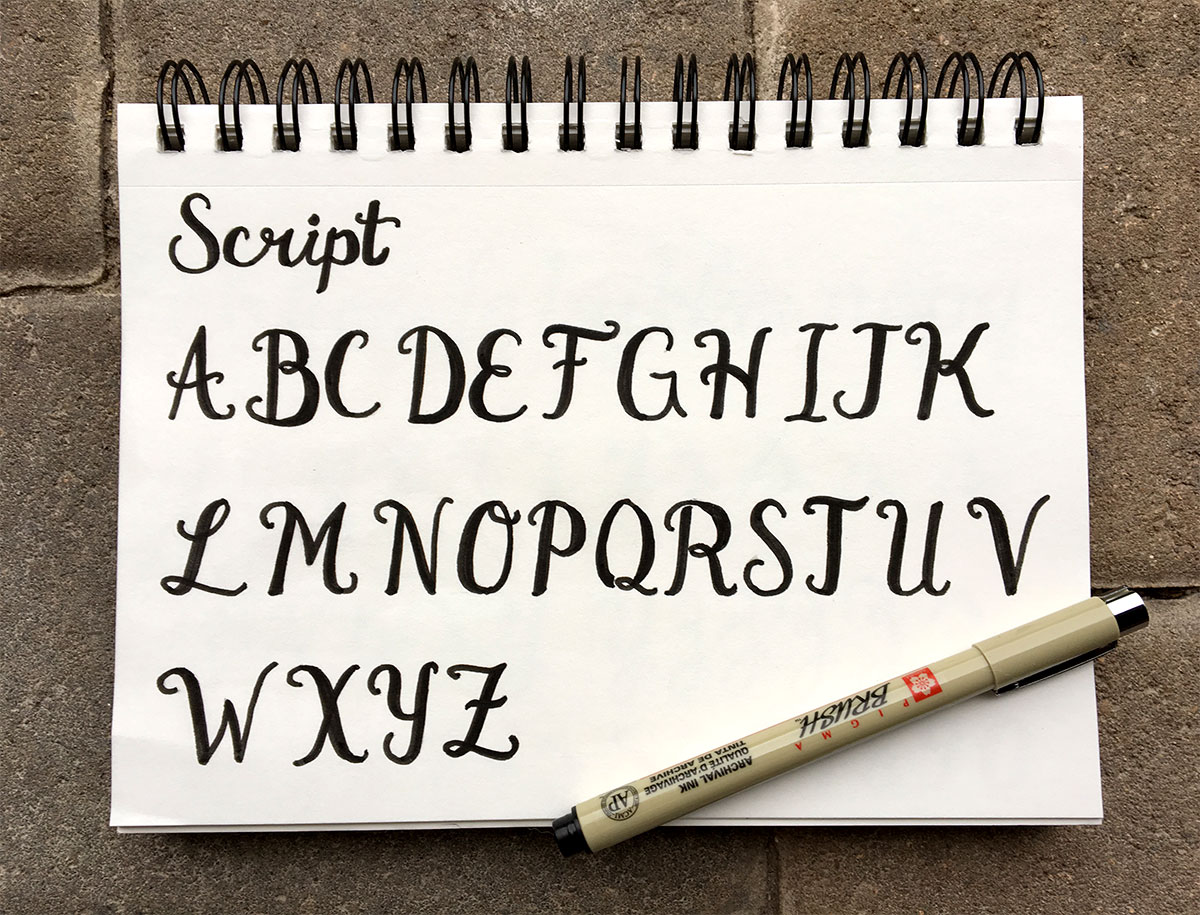 Script
A B C D E F G H I J K
L M N O P Q R S T U V
W X Y Z
PIGMA
BRUSH
ARCHIVAL INK
QUALITÉ D'ARCHIVAGE
TINTA DE ARCHIVE
AP
ACMI